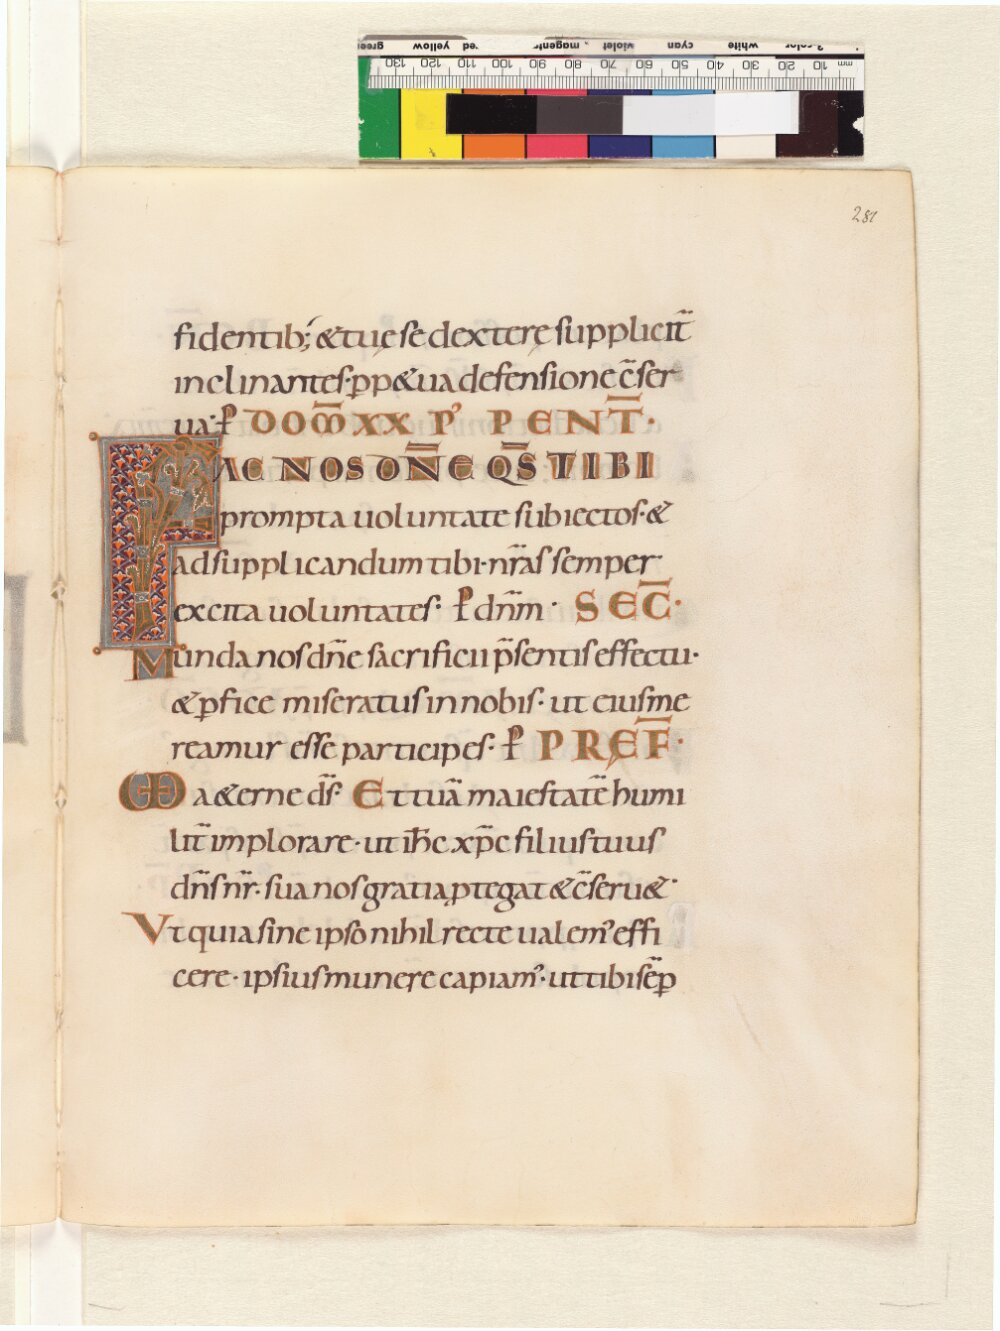 281
fidentib; & tuę se dexterę supplicit̄
inclinantes· ꝑp&ua defensione c̄ser
ua· ꝑ DOM̄ XX P' PENT̄·
FAC NOS DN̄E QS̄ TIBI
prompta uoluntate subiectos· &
ad supplicandum tibi· nr̄as semper
excita uoluntates· ꝑ dnm̄· SEC̄·
Munda nos dn̄e sacrificii p̄sentis effectu·
& ꝑfice miseratus in nobis· ut eius me
reamur esse participes· ꝑ PREF̄·
VD a&erne ds̄· Et tuā maiestatē humi
lit̄ implorare· ut ih̄c xp̄c filius tuus
dn̄s nr̄· sua nos gratia ꝓtegat & c̄seru&·
Vt quia sine ipso nihil recte ualem' effi
cere· ipsius munere capiam'· ut tibi sēꝑ